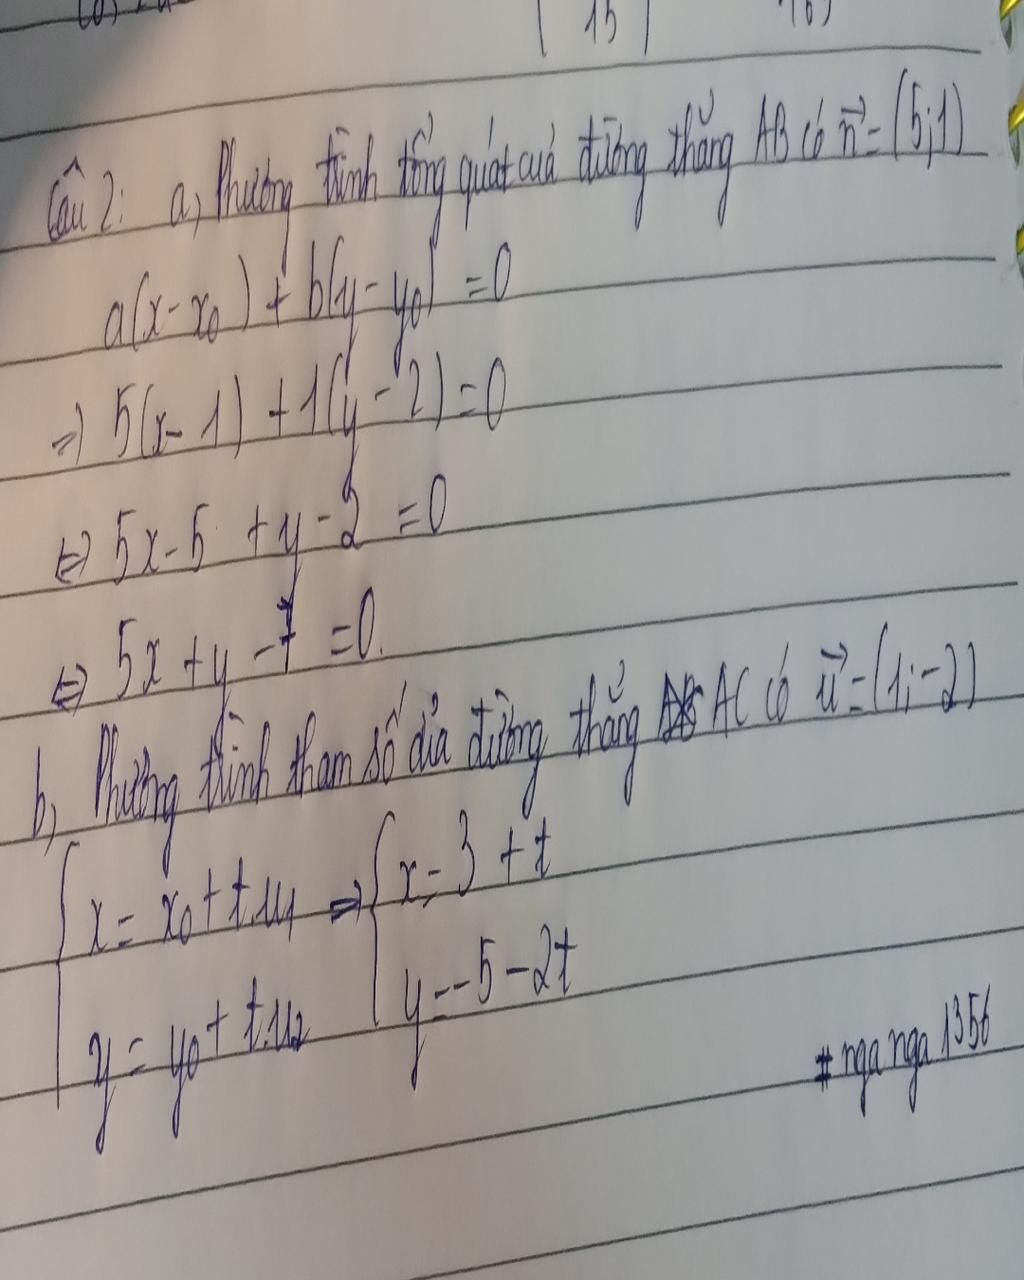 15
Câu 2: a, Phương trình tổng quát cuả đường thẳng AB có n⃗ = (5;1)
a(x - x₀) + b(y - y₀) = 0
=> 5(x - 1) + 1(y - 2) = 0
<=> 5x - 5 + y - 2 = 0
<=> 5x + y - 7 = 0.
b, Phương trình tham số của đường thẳng AC có u⃗ = (1; -2)
{ x = x₀ + t.u₁ => { x = 3 + t
y = y₀ + t.u₂ y = -5 - 2t
# nga nga 1356